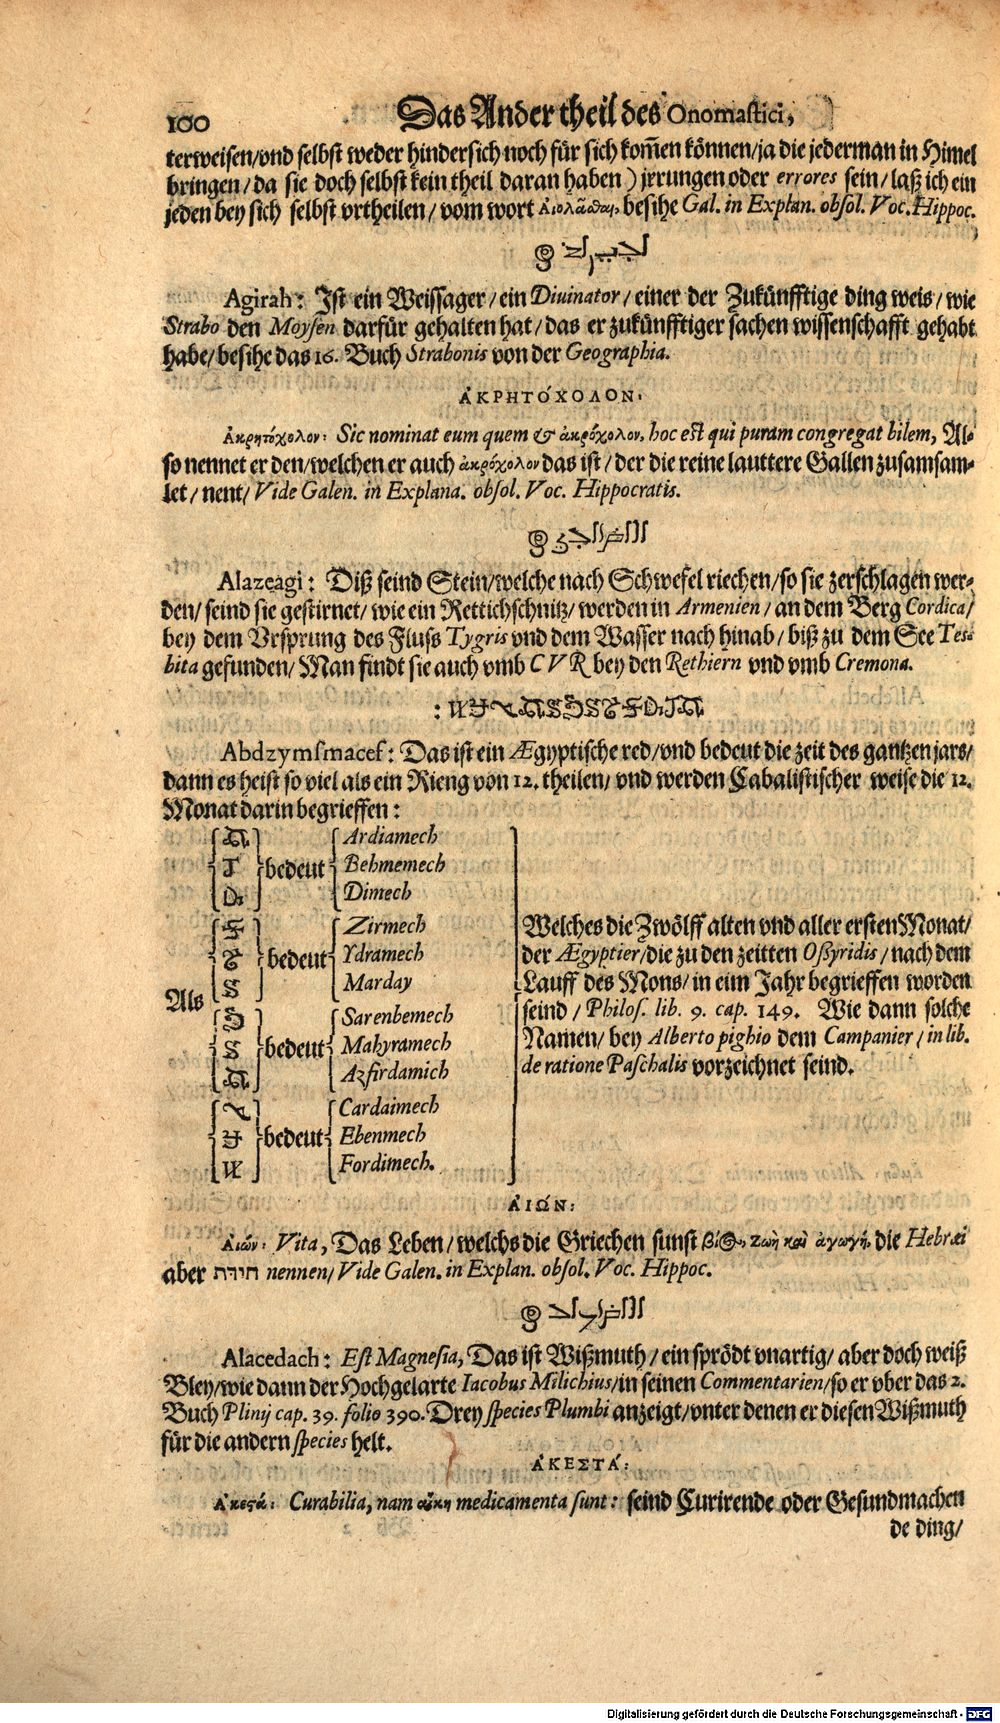 100 Das Ander theil des Onomastici,
terweisen/vnd selbst weder hindersich noch für sich kom̃en können/ja die jederman in Himel
bringen/da sie doch selbst kein theil daran haben) jrrungen oder errores sein/laß ich ein
jeden bey sich selbst vrtheilen/vom wort besihe Gal. in Explan. obsol. Voc. Hippoc.
Agirah: Ist ein Weissager/ein Diuinator/einer der Zukünfftige ding weis/wie
Strabo den Moysen darfür gehalten hat/das er zukünfftiger sachen wissenschafft gehabt
habe/besihe das 16. Buch Strabonis von der Geographia.
ἈΚΡΗΤΌΧΟΛΟΝ.
Ἀκρητόχολον: Sic nominat eum quem & ἀκρόχολον, hoc est qui puram congregat bilem, Al-
so nennet er den/welchen er auch ἀκρόχολον das ist/der die reine lauttere Gallen zusamsam-
let/nent/Vide Galen. in Explana. obsol. Voc. Hippocratis.
Alazeagi: Diß seind Stein/welche nach Schwefel riechen/so sie zerschlagen wer-
den/seind sie gestirnet/wie ein Rettichschnitz/werden in Armenien/an dem Berg Cordica/
bey dem Vrsprung des Fluss Tygris vnd dem Wasser nach hinab/biß zu dem See Tes-
bita gefunden/Man findt sie auch vmb C V R bey den Rethiern vnd vmb Cremona.
Abdzymsmacef: Das ist ein Ægyptische red/vnd bedeut die zeit des gantzen jars/
dann es heist so viel als ein Rieng von 12. theilen/vnd werden Cabalistischer weise die 12.
Monat darin begrieffen:
Als
bedeut
Ardiamech
Behmemech
Dimech
bedeut
Zirmech
Ydramech
Marday
bedeut
Sarenbemech
Mahyramech
Azfirdamich
bedeut
Cardaimech
Ebenmech
Fordimech.
Welches die Zwölff alten vnd aller ersten Monat/
der Ægyptier/die zu den zeitten Oßyridis/nach dem
Lauff des Mons/in eim Jahr begrieffen worden
seind/Philos. lib. 9. cap. 149. Wie dann solche
Namen/bey Alberto pighio dem Campanier/in lib.
de ratione Paschalis vorzeichnet seind.
ἈΙΏΝ:
Ἀιών: Vita, Das Leben/welchs die Griechen sunst βίος, ζωὴ καὶ ἀγωγή. die Hebræi
aber nennen/Vide Galen. in Explan. obsol. Voc. Hippoc.
Alacedach: Est Magnesia, Das ist Wißmuth/ein sprödt vnartig/aber doch weiß
Bley/wie dann der Hochgelarte Iacobus Milichius/in seinen Commentarien/so er vber das 2.
Buch Plinij cap. 39. folio 390. Drey species Plumbi anzeigt/vnter denen er diesen Wißmuth
für die andern species helt.
ἈΚΕΣΤΆ:
Ἀκεστά: Curabilia, nam medicamenta sunt: seind Curirende oder Gesundmachen
de ding/
Digitalisierung gefördert durch die Deutsche Forschungsgemeinschaft - DFG